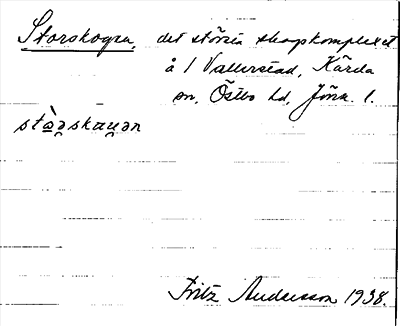 Storskogen, det största skogskomplexet
å 1 Vallerstad, Kärda
sn, Östbo hd, Jönk. l.
stòǝskaųǝn
Fritz Andersson 1938.